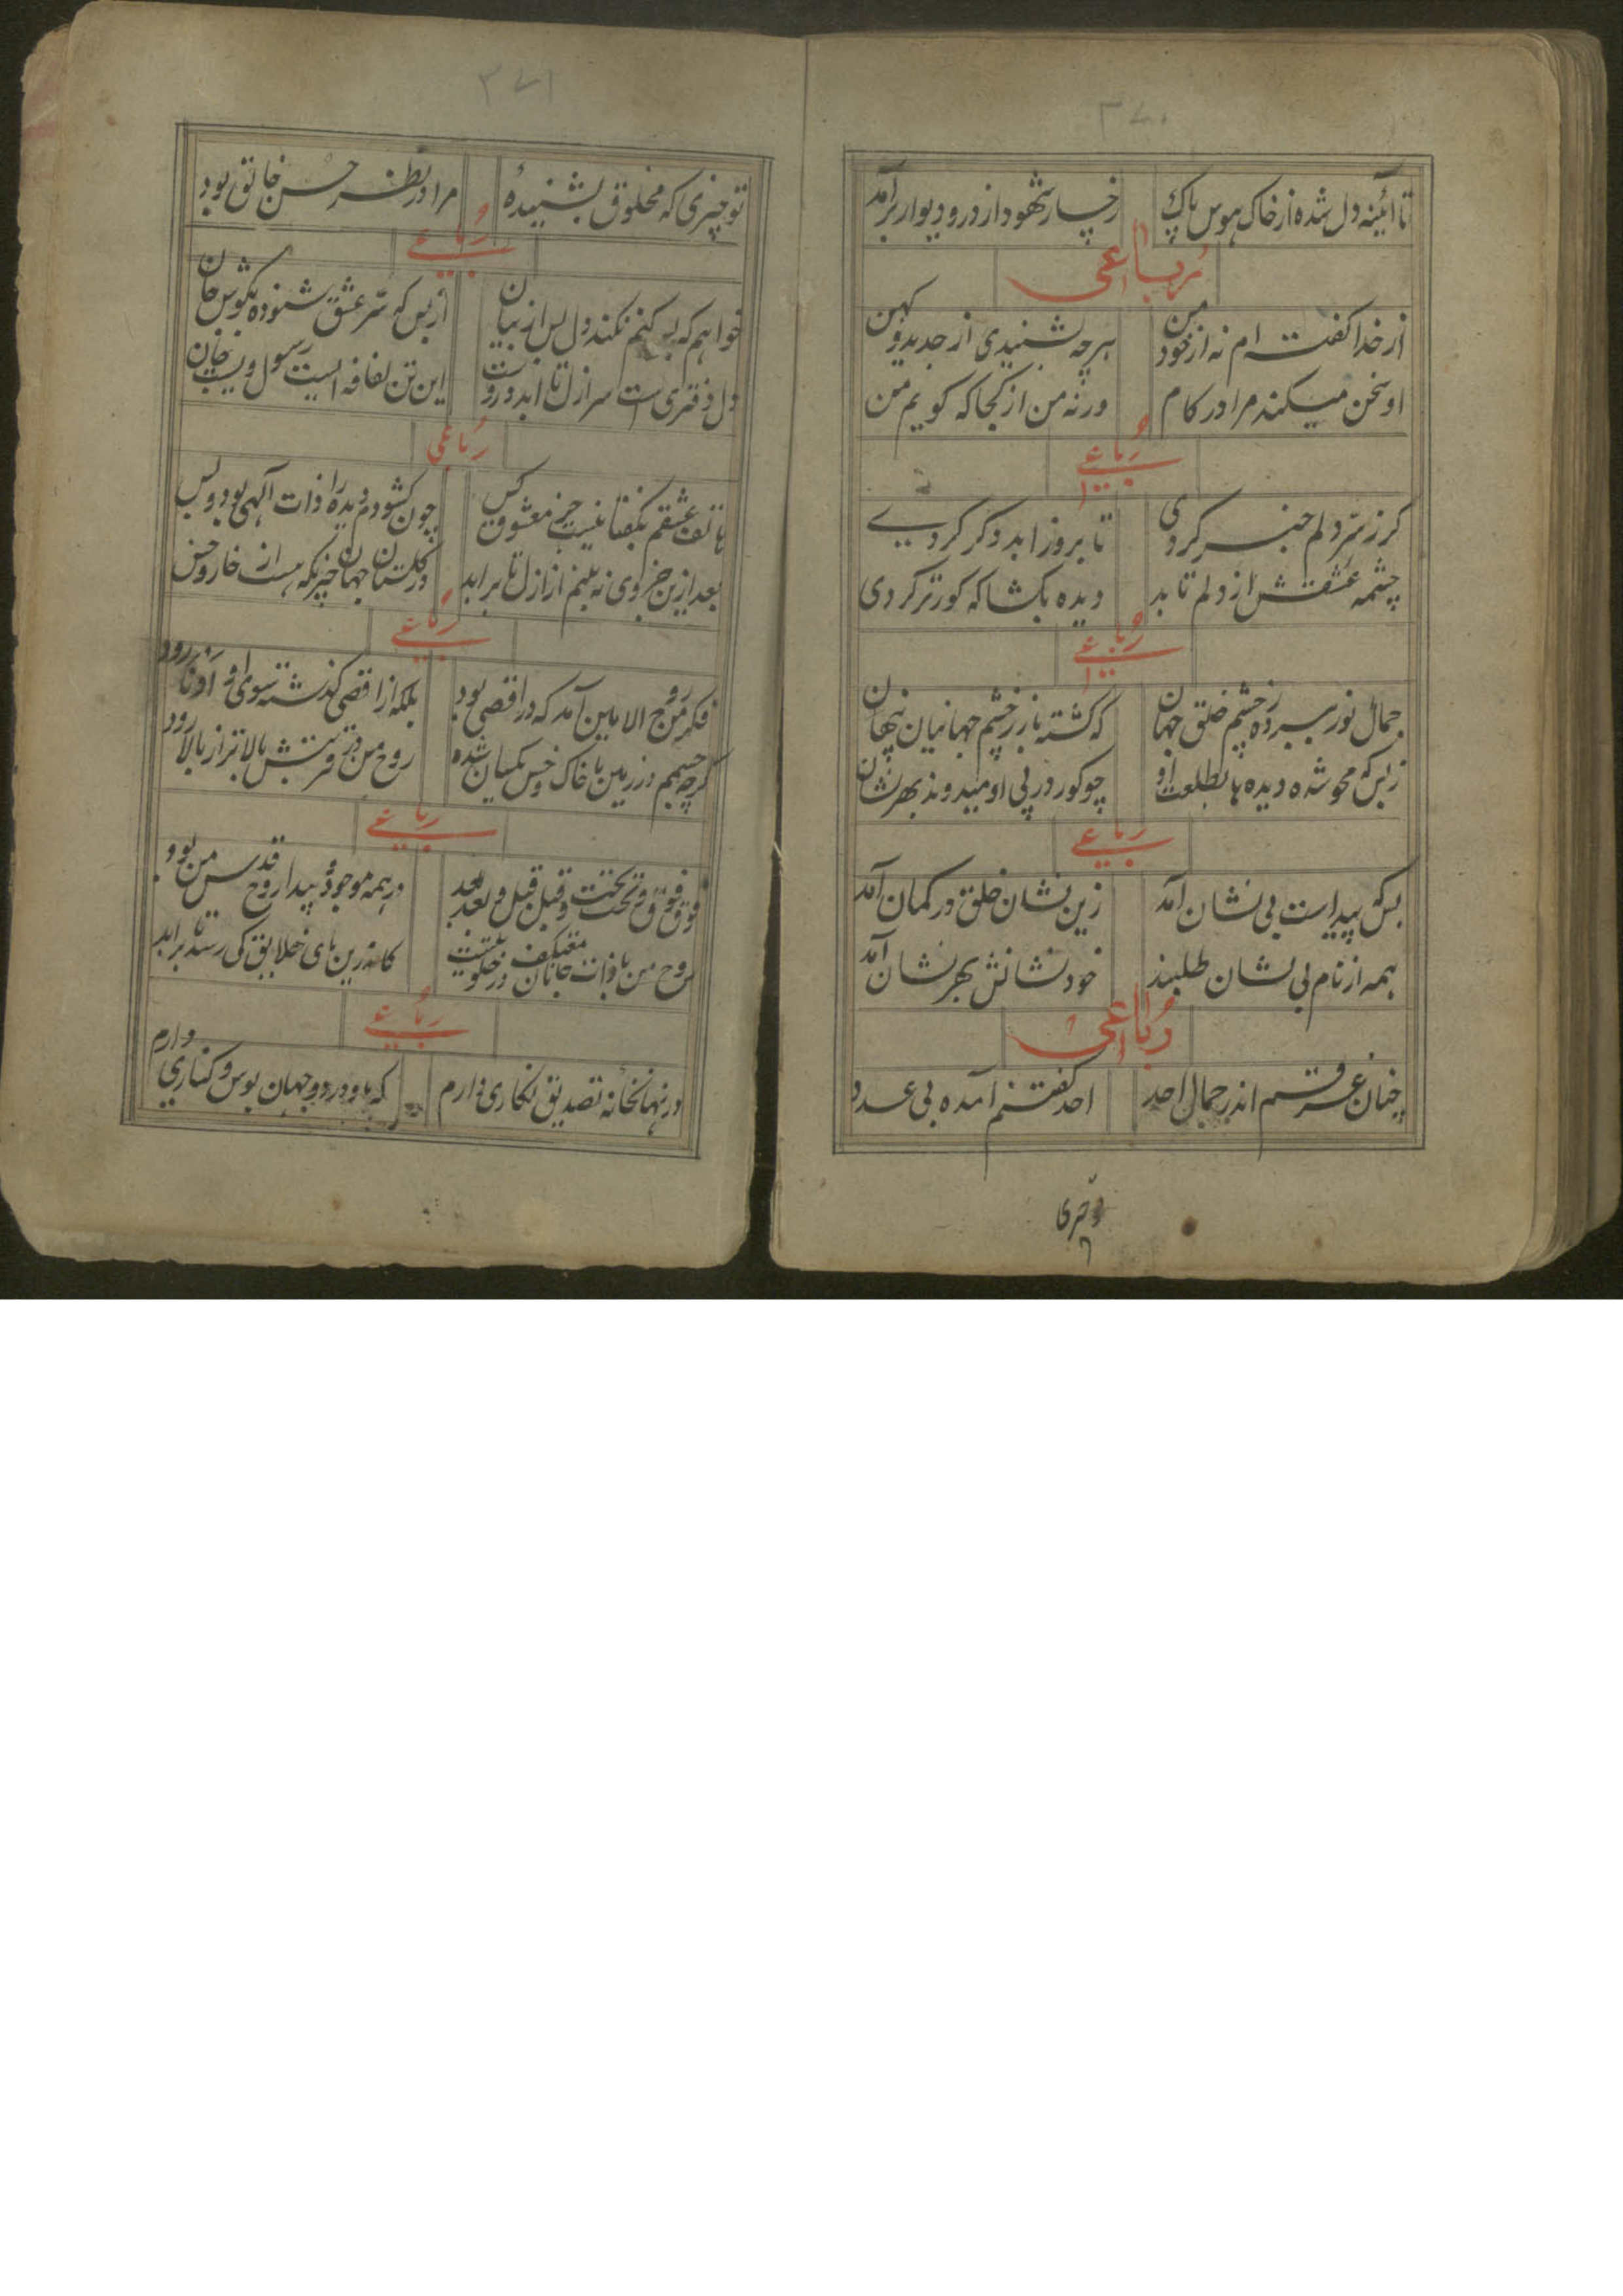 ۳۷۰
تا آئینه دل شده از خاک هوس پاک رخسار شهود از در و دیوار برآمد
رباعی
از خدا گفته ام نه از خود من هرچه بشنیدی از جدید و کهن
او سخن میکند مرا در کام ورنه من از کجا که گویم من
رباعی
کر ز سر دلم خبر کردی تا بروز ابد دکر کردی
چشمه عشقش از دلم تابد دیده بکشا که کورتر کردی
رباعی
جمال نور ببرده ز چشم خلق جهان که گشته باز ز چشم جهانیان پنهان
زبس که محو شده دیده ها بطلعت او چو کور در پی او میدوند بهر نشان
رباعی
بس که پیداست بی نشان آمد زین نشان خلق در کمان آمد
همه از نام بی نشان طلبند خود نشانش بهر نشان آمد
رباعی
چنان غرقم اندر جمال احد احد گفتنم آمده بی عدد
۳۷۱
تو چیزی که مخلوق بشنیدهٔ مرا در نظر حسن خالق بود
رباعی
خواهم که بس کنم نکند دل بس از بیان از بس که سر عشق شنوده بگوش جان
دل دفتری است سر ازل تا ابد دروست این تن لفافه ایست رسول ویست جان
رباعی
هاتف عشقم بگفتا نیست جز معشوق کس چون کشودم دیده را ذات آلهی بود و بس
بعد ازین جز وی نه بینم از ازل تا بر ابد در گلستان جهان چیزیکه هست از خار و خس
رباعی
فکر من روح الامین آمد که در اقصی بود بلکه از اقصی گذشته سوی او ادنا رود
گرچه جسمم در زمین با خاک و خس یکسان شده روح من در قربتش بالاتر از بالا رود
رباعی
فوق فوق و تحت تحت و قبل قبل و بعد بعد در همه موجود و پیدا روح قدس من بود
روح من با ذات جانان معتکف در خلوتیست کاندرین پای خلایق کی رسد تا بر ابد
رباعی
در نهانخانه تصدیق نگاری دارم که باو در دو جهان بوس و کناری دارم